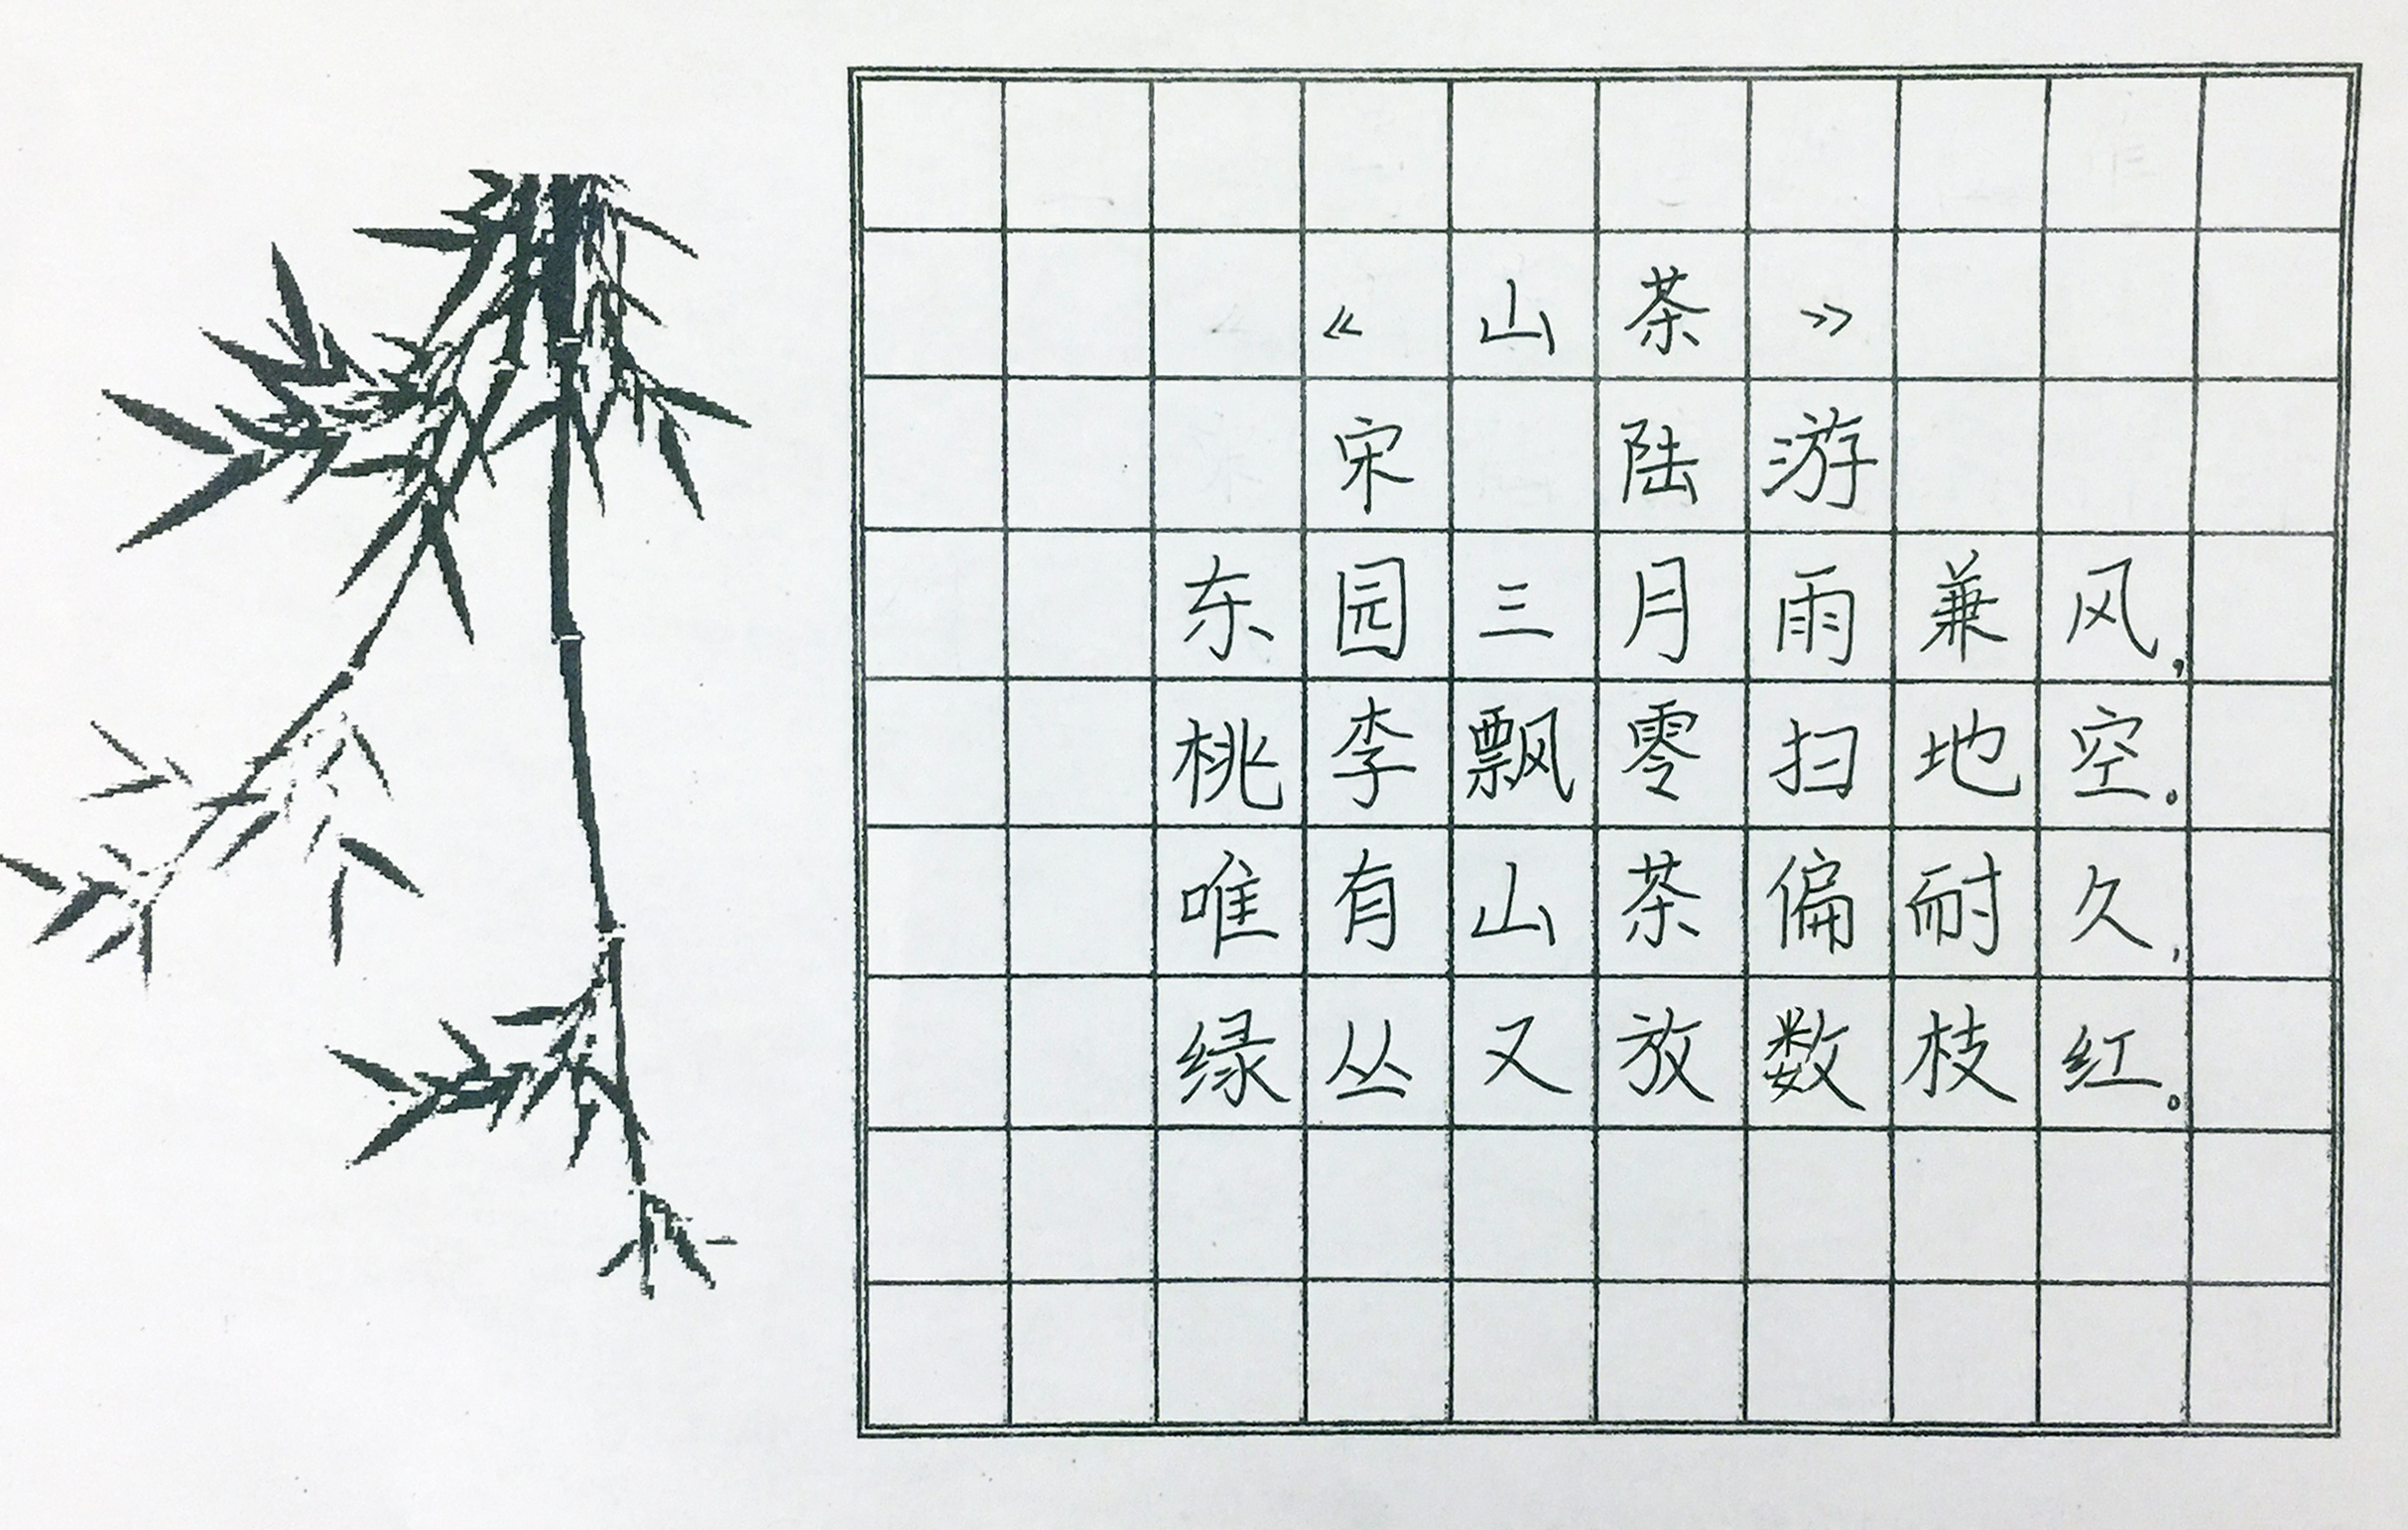 《山茶》
宋 陆游
东园三月雨兼风,
桃李飘零扫地空。
唯有山茶偏耐久,
绿丛又放数枝红。